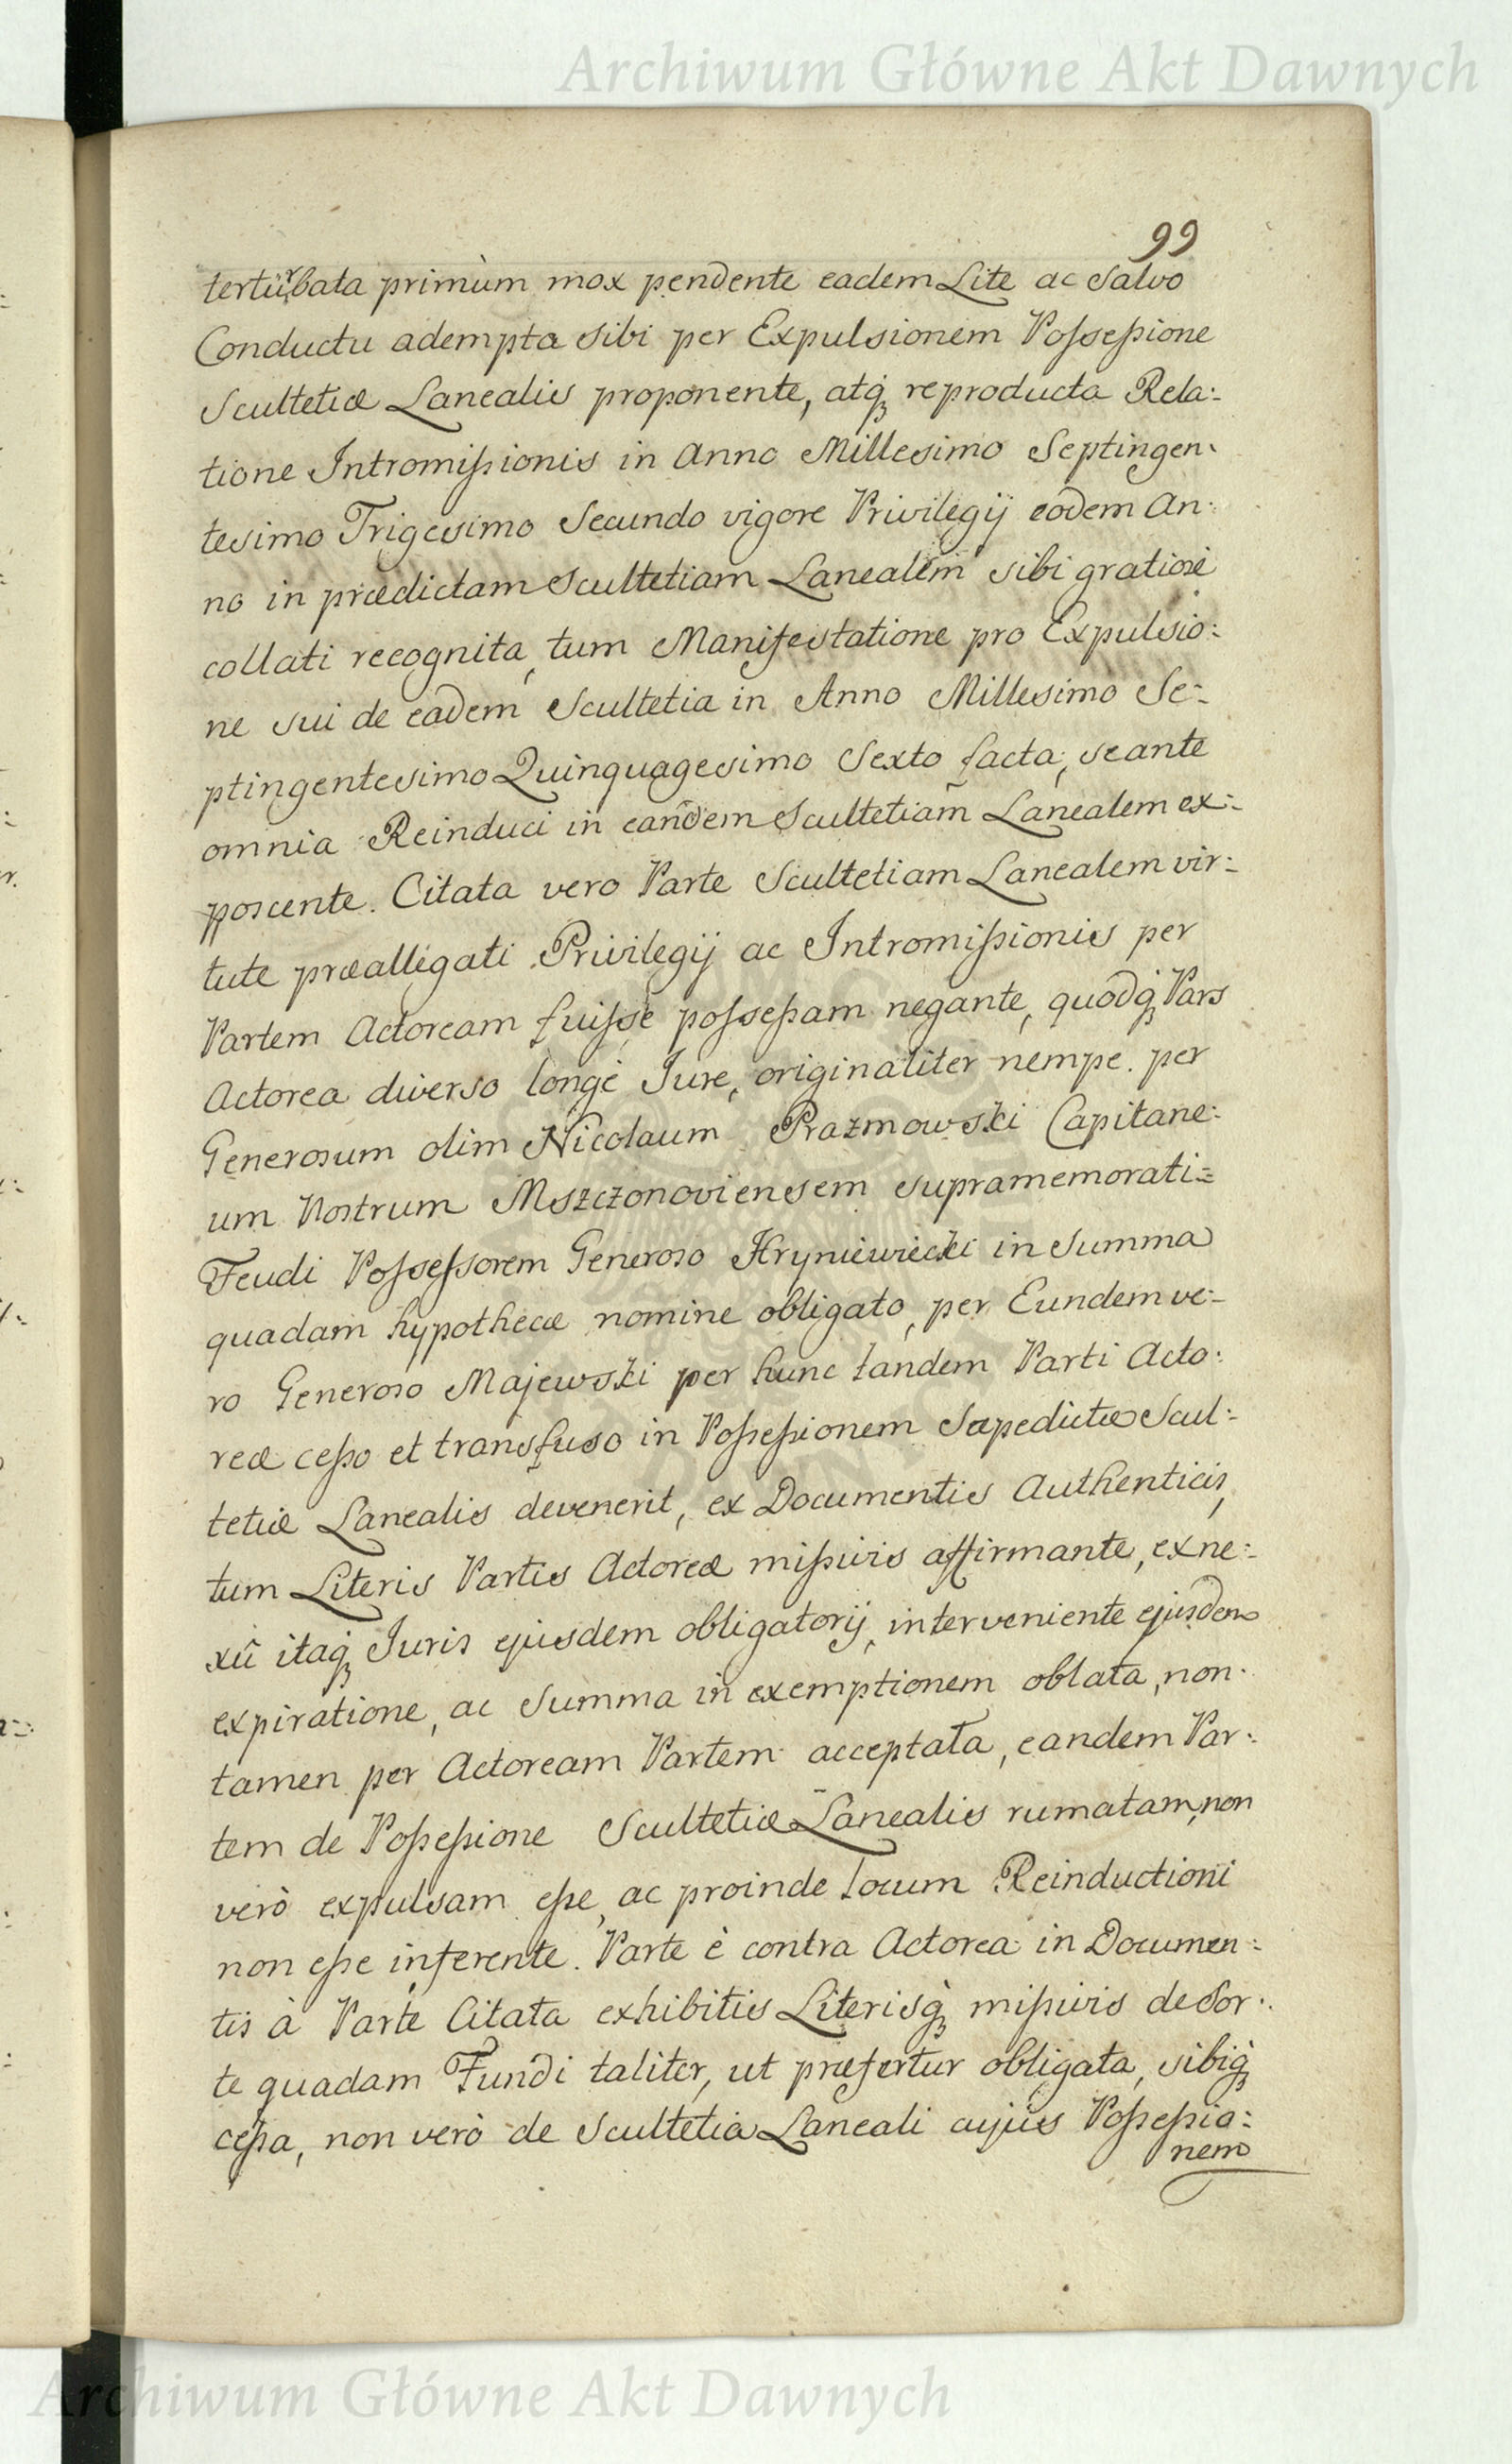 Archiwum Główne Akt Dawnych
99
tertúrbata primùm mox pendente eadem Lite ac Salvo
Conductu adempta sibi per Expulsionem Possessione
Scultetiæ Lanealis proponente, atq́ꝫ reproducta Rela:
tione Intromissionis in Anno Millesimo Septingen:
tesimo Trigesimo Secundo vigore Privilegij eodem An:
no in prædictam Scultetiam Lanealem sibi gratiosè
collati recognita, tum Manifestatione pro Expulsio:
ne sui de eadem Scultetia in Anno Millesimo Se:
ptingentesimo Quinquagesimo Sexto facta, se ante
omnia Reinduci in eandem Scultetiam Lanealem ex:
poscente. Citata vero Parte Scultetiam Lanealem vir:
tute præallegati Privilegij ac Intromissionis per
Partem Actoream fuisse possessam negante, quodq́ꝫ Pars
Actorea diverso longè Jure, originaliter nempe. per
Generosum olim Nicolaum Prazmowski Capitane:
um Nostrum Mszczonoviensem supramemorati:
Feudi Possessorem Generoso Hryniewiecki in Summa
quadam hypothecæ nomine obligato, per Eundem ve:
ro Generoso Majewski per hunc tandem Parti Acto:
reæ cesso et transfuso in Possessionem Sæpedictæ Scul:
tetiæ Lanealis devenerit, ex Documentis Authenticis,
tum Literis Partis Actoreæ missivis affirmante, exne:
xû itaq́ꝫ Juris ejusdem obligatorij, interveniente ejusdem
expiratione, ac Summa in exemptionem oblata, non
tamen per Actoream Partem acceptata, eandem Par:
tem de Possessione Scultetiæ Lanealis rumatam, non
verò expulsam esse, ac proinde locum Reinductioni
non esse inferente. Parte è contra Actorea in Documen:
tis à Parte Citata exhibitis Literisq́ꝫ missivis de Sor:
te quadam Fundi taliter, ut præfertur obligata, sibiq́ꝫ
cessa, non verò de Scultetia Laneali cujus Possessio:
nem
Archiwum Główne Akt Dawnych